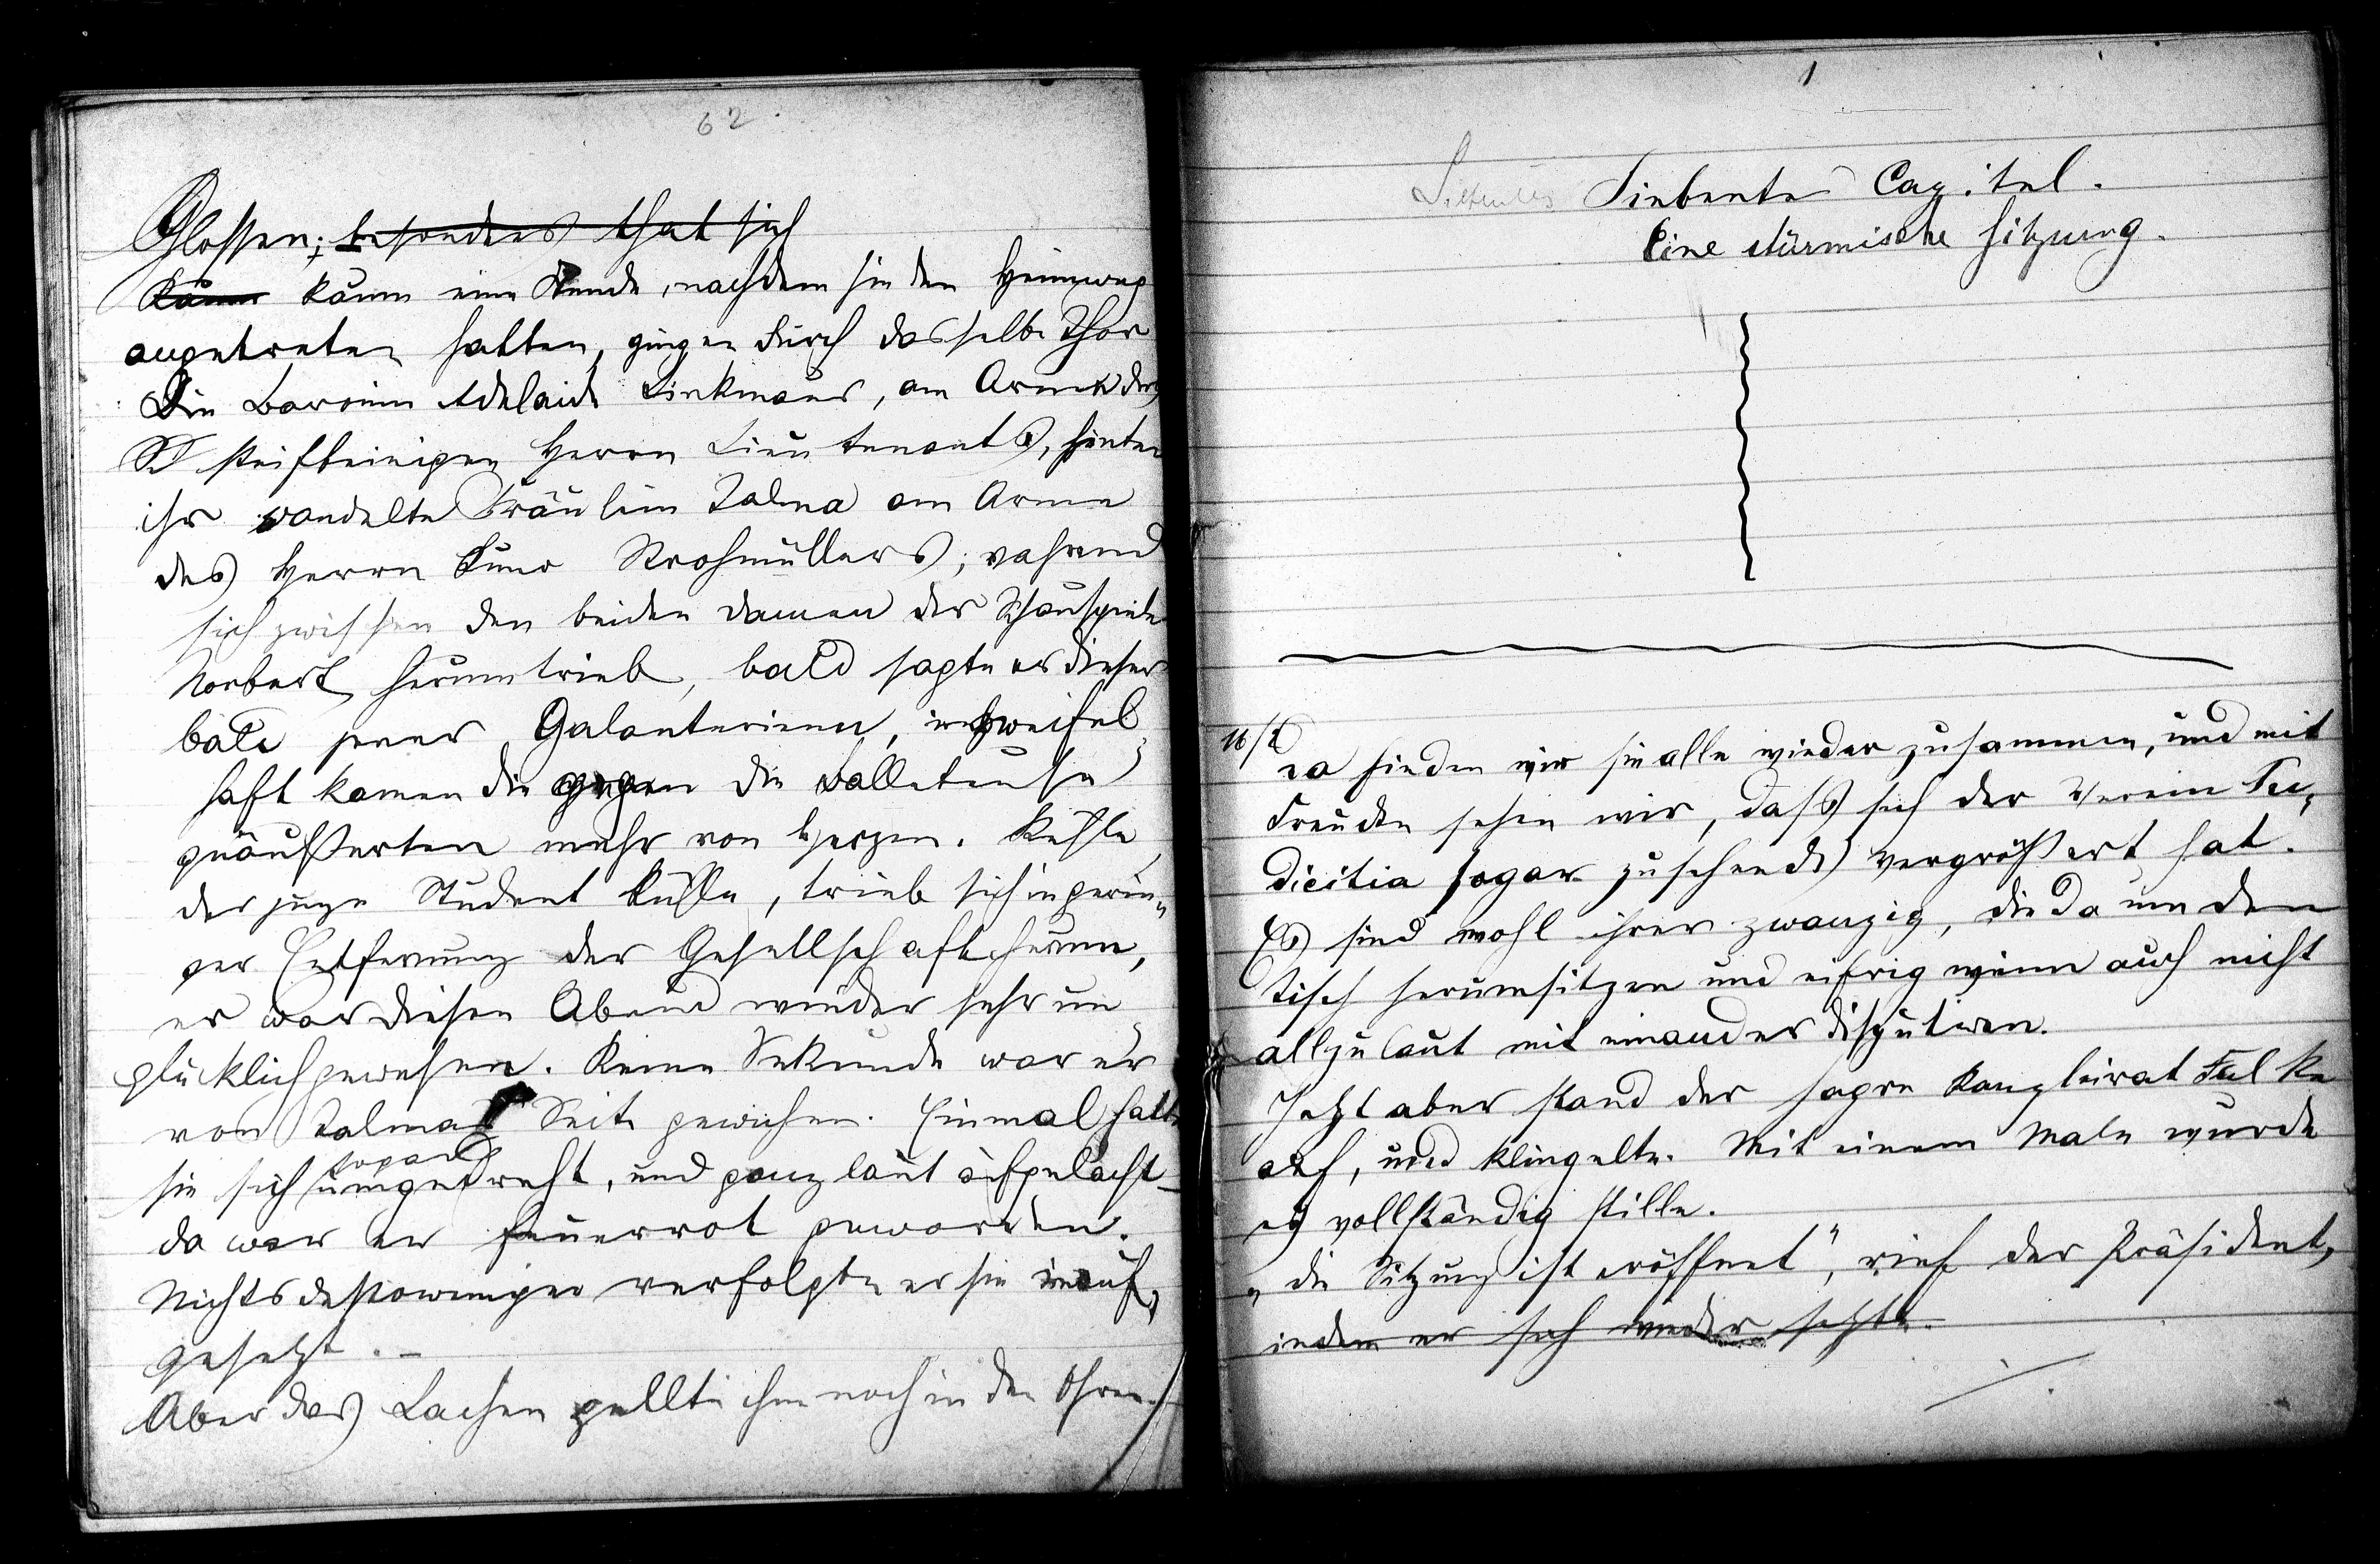 62
Glossen; besonders that sich
Kaum kaum eine Stunde, nachdem sie den Heimweg
angetreten hatten, gingen durch dasselbe Thor
Die Baronin Adelaide Linkmans, am Arme des
steifbeinigen Herrn Lieutenants, hinter
ihr wandelte Fräulein Talma am Arme
des Herrn Kuno Strohmüllers; während
sich zwischen den beiden Damen der Schauspieler
Norbert herumtrieb, bald sagte er dieser
bald jener Galanterieen, unzweifel
haft kamen die gegen die Balleteuse
geäußerten mehr von Herzen. Kühle
der junge Student Kühle, trieb sich in gerin„
ger Entfernung der Gesellschaft herum,
er war diesen Abend wieder sehr un
glücklich gewesen. Keine Sekunde war er
von Talmas Seite gewichen. Einmal hatte
sie sich sogar umgedreht, und ganz laut aufgelacht_
da war er feuerrot geworden.
Nichtsdestoweniger verfolgte er sie unauf„
gesetzt._
Aber das Lachen gellte ihm noch in den Ohren.
1
Siebentes Siebentes Capitel.
Eine stürmische Sitzung.
16/
Da finden wir sie alle wieder zusammen, und mit
Freuden sehen wir, daß sich der Verein
dicitia sogar zusehends vergrößert hat.
Es sind wohl ihrer zwanzig, die da um den
Tisch herumsitzen und eifrig wenn auch nicht
allzulaut mit einander disputiren.
Jetzt aber stand der hagre Kanzleirat Falke
auf, und klingelte. Mit einem Male wurde
es vollständig stille.
„die Sitzung ist eröffnet", rief der Präsident,
indem er sich wieder setzte.